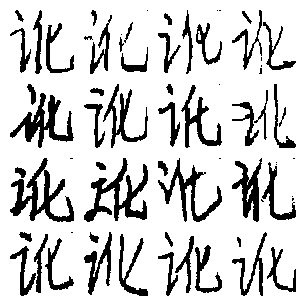 讹讹讹讹
讹讹讹讹
讹讹讹讹
讹讹讹讹